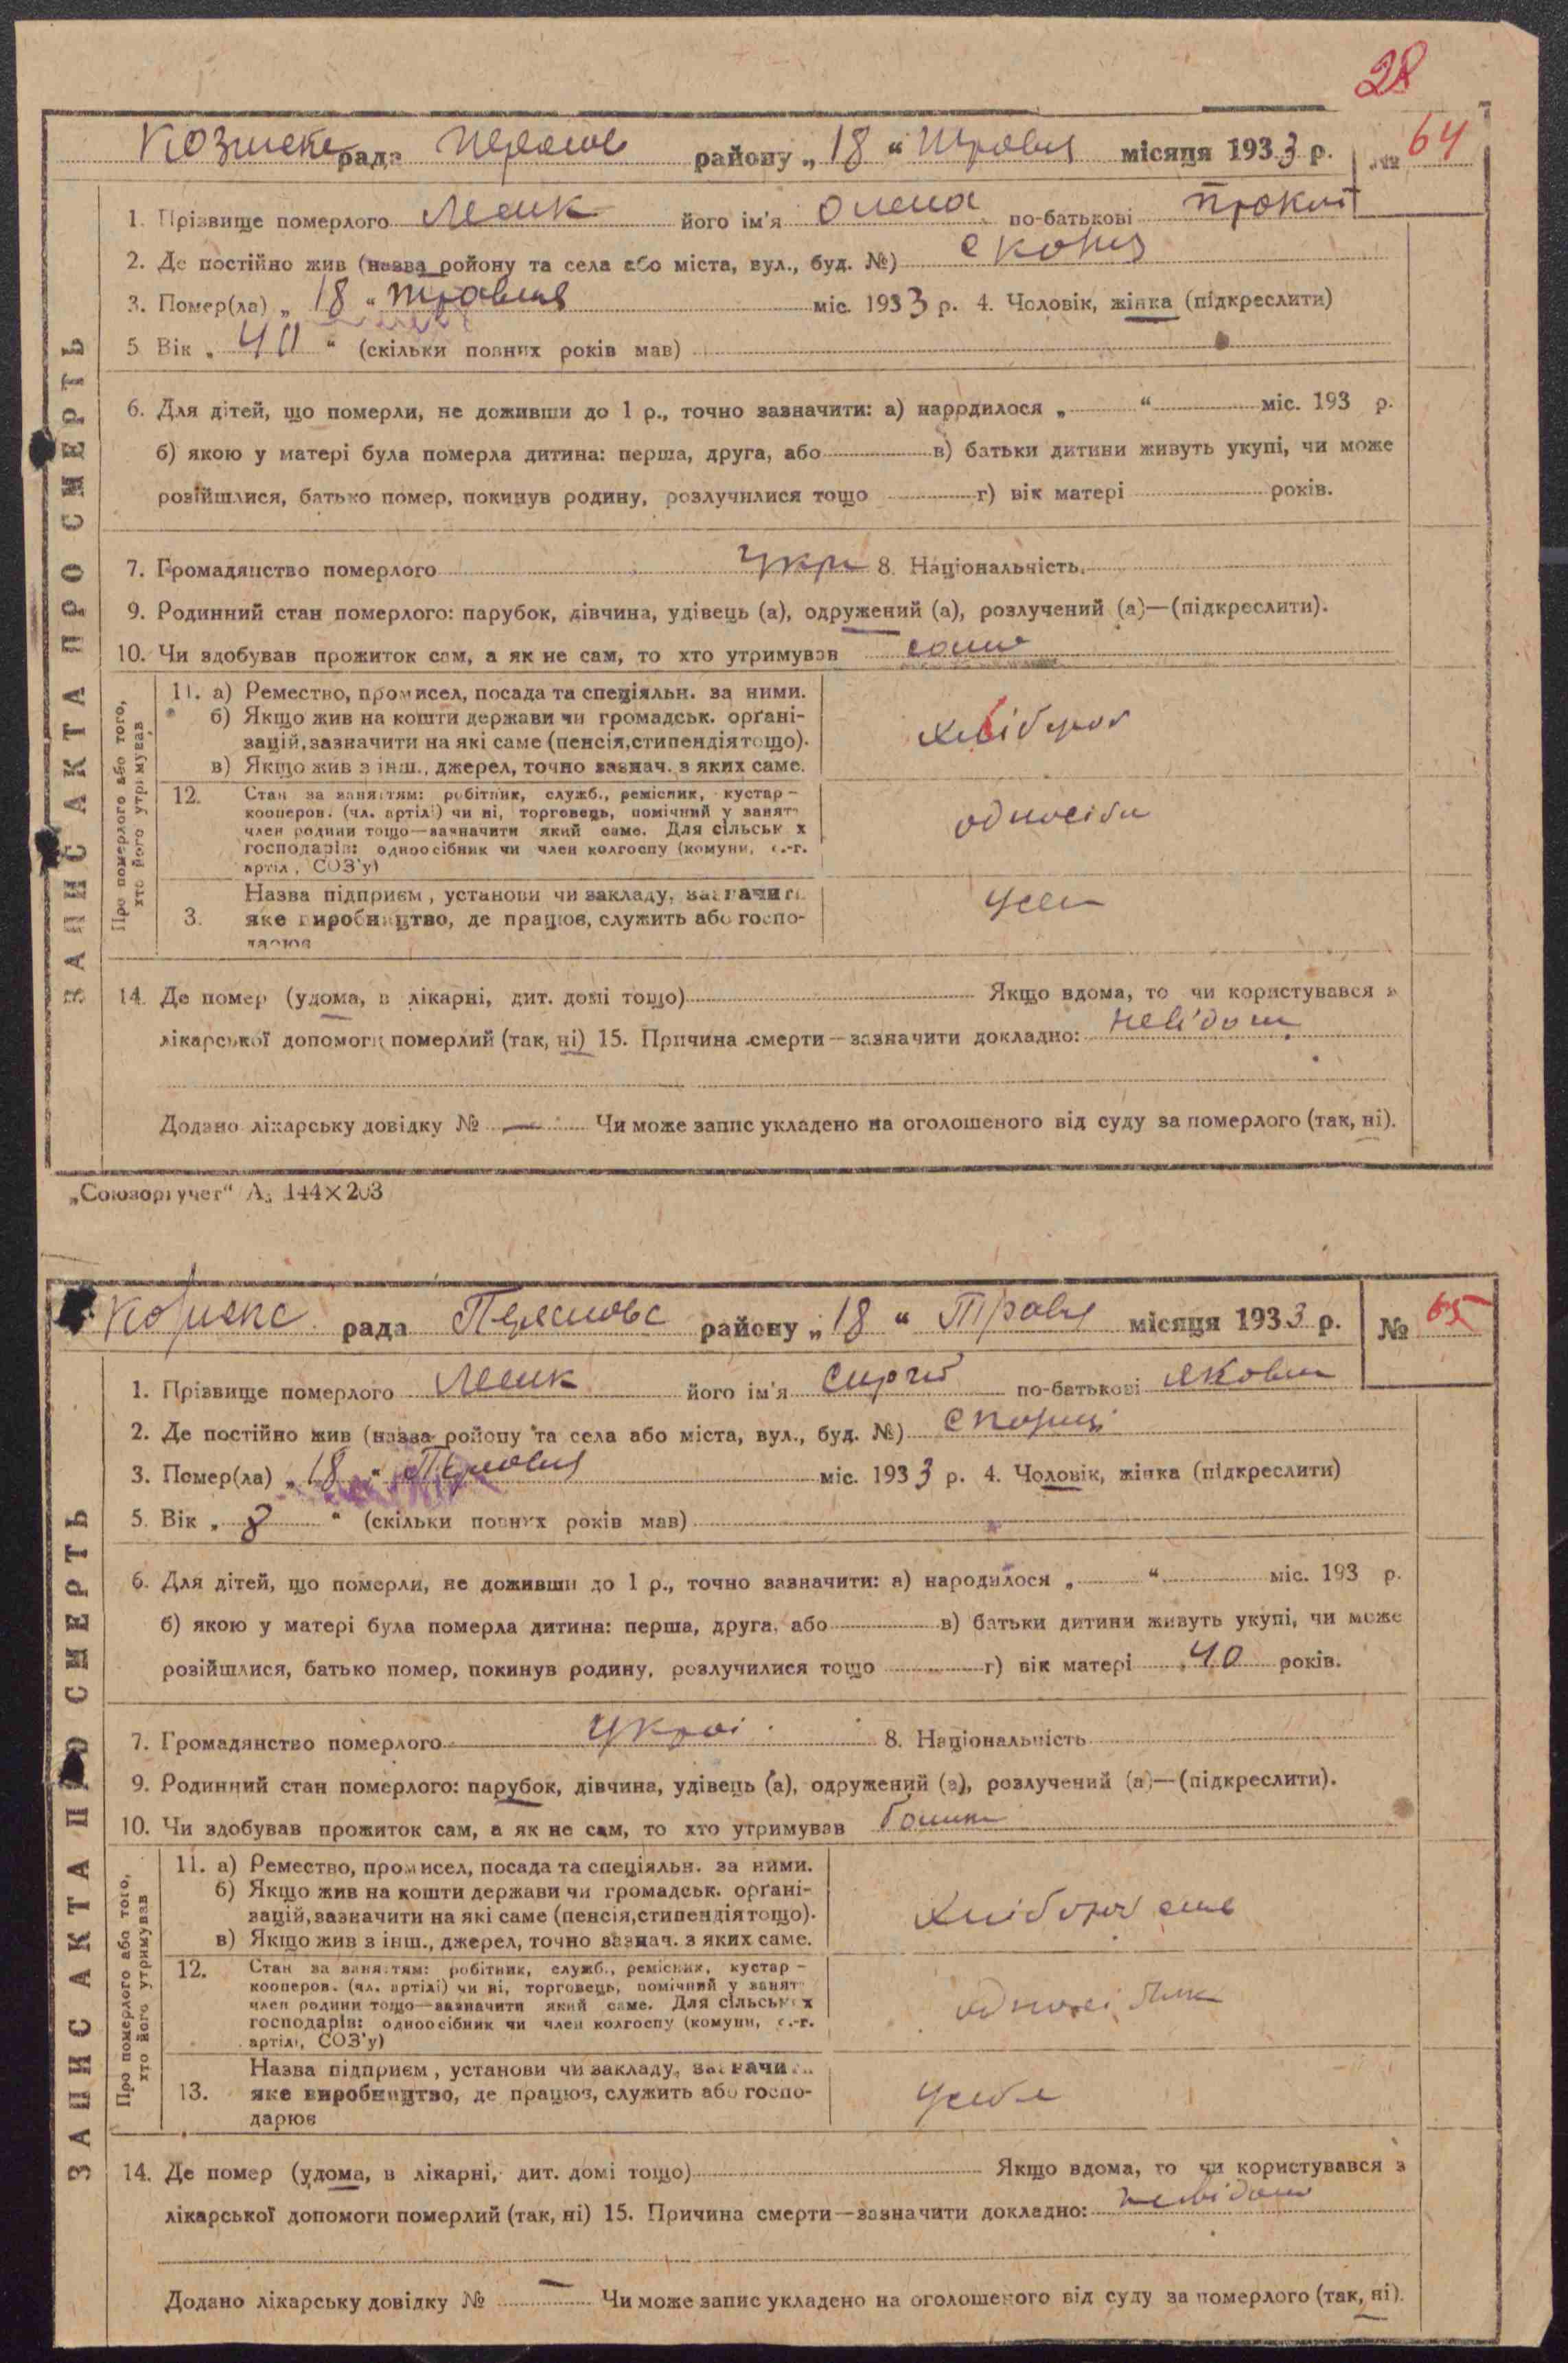 28
рада района „ 18 “ Травня місяця 1933 р. № 64
1. Прізвище померлого його ім'я Олена по-батькові Прокоп
2. Де постійно жив (назва ройону та села або міста, вул., буд. №)
3. Помер(ла) „ 18 “ травня міс. 1933 р. 4. Чоловік, жінка (підкреслити)
5 Вік „ 40 “ (скільки повних років мав)
6. Для дітей, що померли, не доживши до 1 р., точно зазначити: а) народилося „ “ міс. 193 р.
б) якою у матері була померла дитина: перша, друга, або в) батьки дитини живуть укупі, чи може
розійшлися, батько помер, покинув родину, розлучилися тощо г) вік матері років.
7. Громадянство померлого укр 8. Національність
9. Родинний стан померлого: парубок, дівчина, удівець (а), одружений (а), розлучений (а)—(підкреслити).
10. Чи здобував прожиток сам, а як не сам, то хто утримував сома
11. а) Ремество, промисел, посада та спеціяльн. за ними.
б) Якщо жив на кошти держави чи громадськ. орґані-
зацій, зазначити на які саме (пенсія, стипендія тощо).
в) Якщо жив з інш., джерел, точно зазнач. з яких саме.
хлібороб
12. Стан за заняттям: робітник, служб., ремісник, кустар –
кооперов. (чл. артілі) чи ні, торговець, помічний у занят
член родини тощо—зазначити який саме. Для сільськ х
господарів: одноосібник чи член колгоспу (комуни, с.-г.
артіл, СОЗ'у)
Назва підприєм, установи чи закладу, зазначити
3. яке виробництво, де працює, служить або госпо-
дарює
14. Де помер (удома, в лікарні, дит. домі тощо) Якщо вдома, то чи користувався з
лікарської допомоги померлий (так, ні) 15. Причина смерти—зазначити докладно: невідом
Додано лікарську довідку № — Чи може запис укладено на оголошеного від суду за померлого (так, ні).
ЗАПИС АКТА ПРО СМЕРТЬ
Про померлого або того,
хто його утримував
„Союзоргучет“ А₅ 144×203
рада района „ 18 “ Травня місяця 1933 р. № 65
1. Прізвище померлого його ім'я Сиргій по-батькові Якович
2. Де постійно жив (назва ройону та села або міста, вул., буд. №)
3. Помер(ла) „ 18 “ Травня міс. 1933 р. 4. Чоловік, жінка (підкреслити)
5. Вік „ 8 “ (скільки повних років мав)
6. Для дітей, що померли, не доживши до 1 р., точно зазначити: а) народилося „ “ міс. 193 р.
б) якою у матері була померла дитина: перша, друга, або в) батьки дитини живуть укупі, чи може
розійшлися, батько помер, покинув родину, розлучилися тощо г) вік матері 40 років.
7. Громадянство померлого Украі 8. Національність
9. Родинний стан померлого: парубок, дівчина, удівець (а), одружений (а), розлучений (а)—(підкреслити).
10. Чи здобував прожиток сам, а як не сам, то хто утримував
11. а) Ремество, промисел, посада та спеціяльн. за ними.
б) Якщо жив на кошти держави чи громадськ. орґані-
зацій, зазначити на які саме (пенсія, стипендія тощо).
в) Якщо жив з інш., джерел, точно зазнач. з яких саме.
12. Стан за заняттям: робітник, служб., ремісник, кустар –
кооперов. (чл. артілі) чи ні, торговець, помічний у занят
член родини тощо—зазначити який саме. Для сільських
господарів: одноосібник чи член колгоспу (комуни, с.-г.
артілі, СОЗ'у)
Назва підприєм, установи чи закладу, зазначити
13. яке виробництво, де працює, служить або госпо-
дарює
у себе
14. Де помер (удома, в лікарні, дит. домі тощо) Якщо вдома, то чи користувався з
лікарської допомоги померлий (так, ні) 15. Причина смерти—зазначити докладно: невідом
Додано лікарську довідку № — Чи може запис укладено на оголошеного від суду за померлого (так, ні).
ЗАПИС АКТА ПРО СМЕРТЬ
Про померлого або того,
хто його утримував